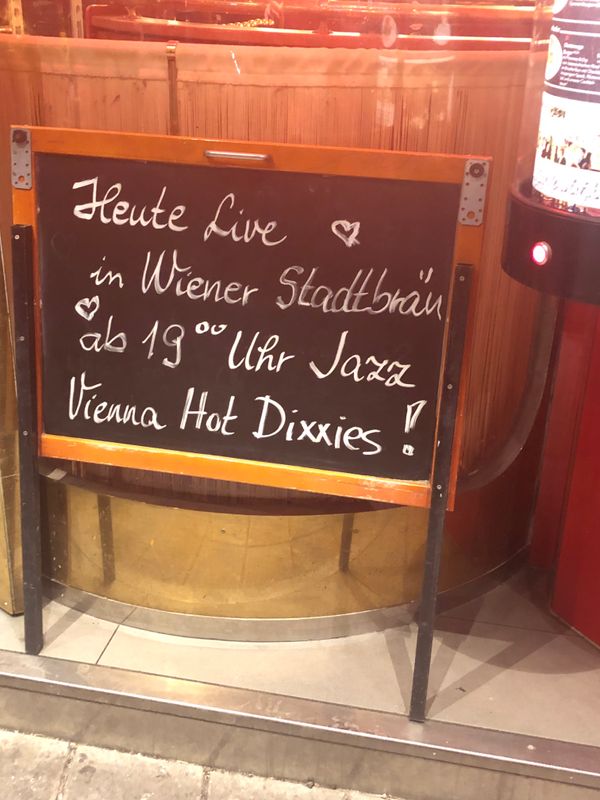 Heute Live ♥
in Wiener Stadtbräu
ab 19⁰⁰ Uhr Jazz
Vienna Hot Dixxies!